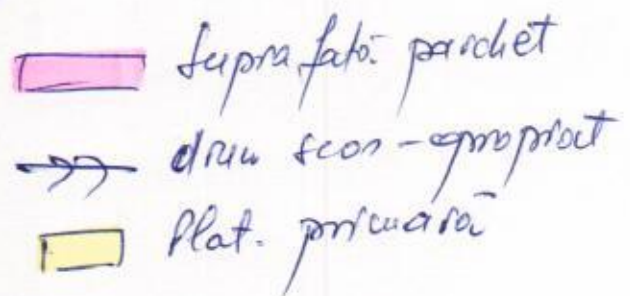 Suprafață parchet
drum scos-apropiat
Plat. primară